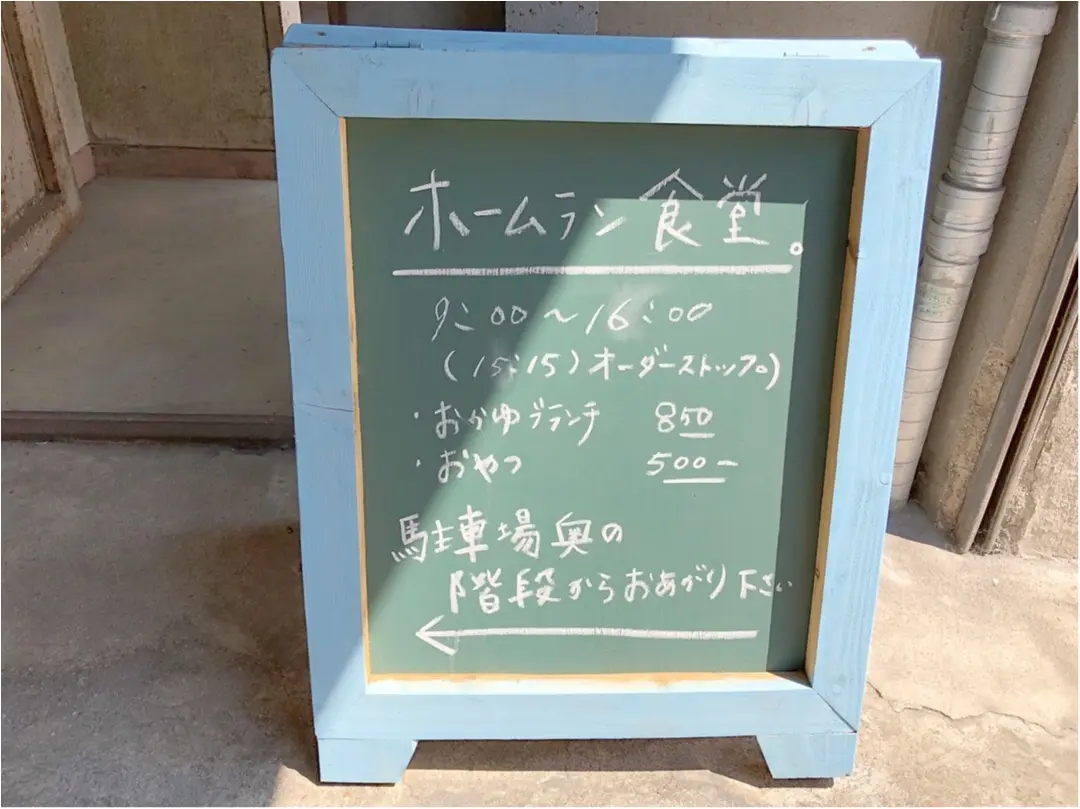 ホームラン食堂。
9:00〜16:00
(15:15)オーダーストップ。)
・おかゆブランチ 850
・おやつ 500ー
駐車場奥の
階段からおあがり下さい
←